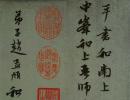 平書和南上
中峯和上吾師
弟子趙孟頫和